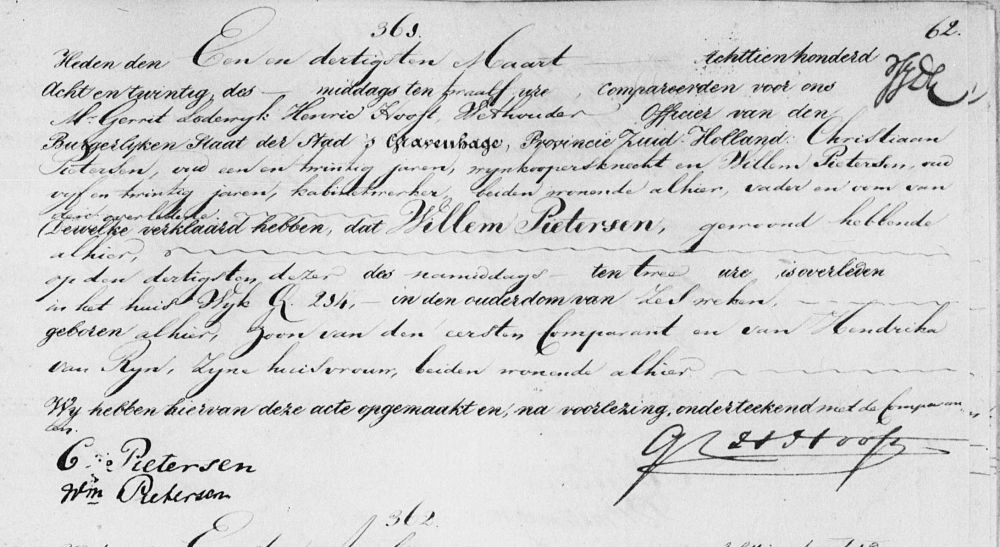 361. 62.
Heden den Een en dertigsten Maart Achttienhonderd
Acht en twintig, des — middags ten twaalf ure, compareerden voor ons
Mr. Gerrit Lodewijk Henrie Hooft, Wethouder Officier van den
Burgerlijken Staat der Stad 's Gravenhage, Provincie Zuid-Holland: Christiaan
Pietersen, oud een en twintig jaren, wynkoopersknecht en Willem Pietersen, oud
vyf en twintig jaren, kabinetwerker, beiden wonende alhier, vader en oom van
den overledene.
Dewelke verklaard hebben, dat Willem Pietersen, gewoond hebbende
alhier,
op den dertigsten dezer des namiddags — ten twee ure, is overleden
in het huis Wyk Q. 234, — in den ouderdom van zes weken,
geboren alhier, Zoon van den eersten Comparant en van Hendrika
van Ryn, Zyne huisvrouw, beiden wonende alhier
Wy hebben hiervan deze acte opgemaakt en, na voorlezing, onderteekend met de Comparan-
ten.
GLH Hooft
C Pietersen
Wm Pietersen
362.